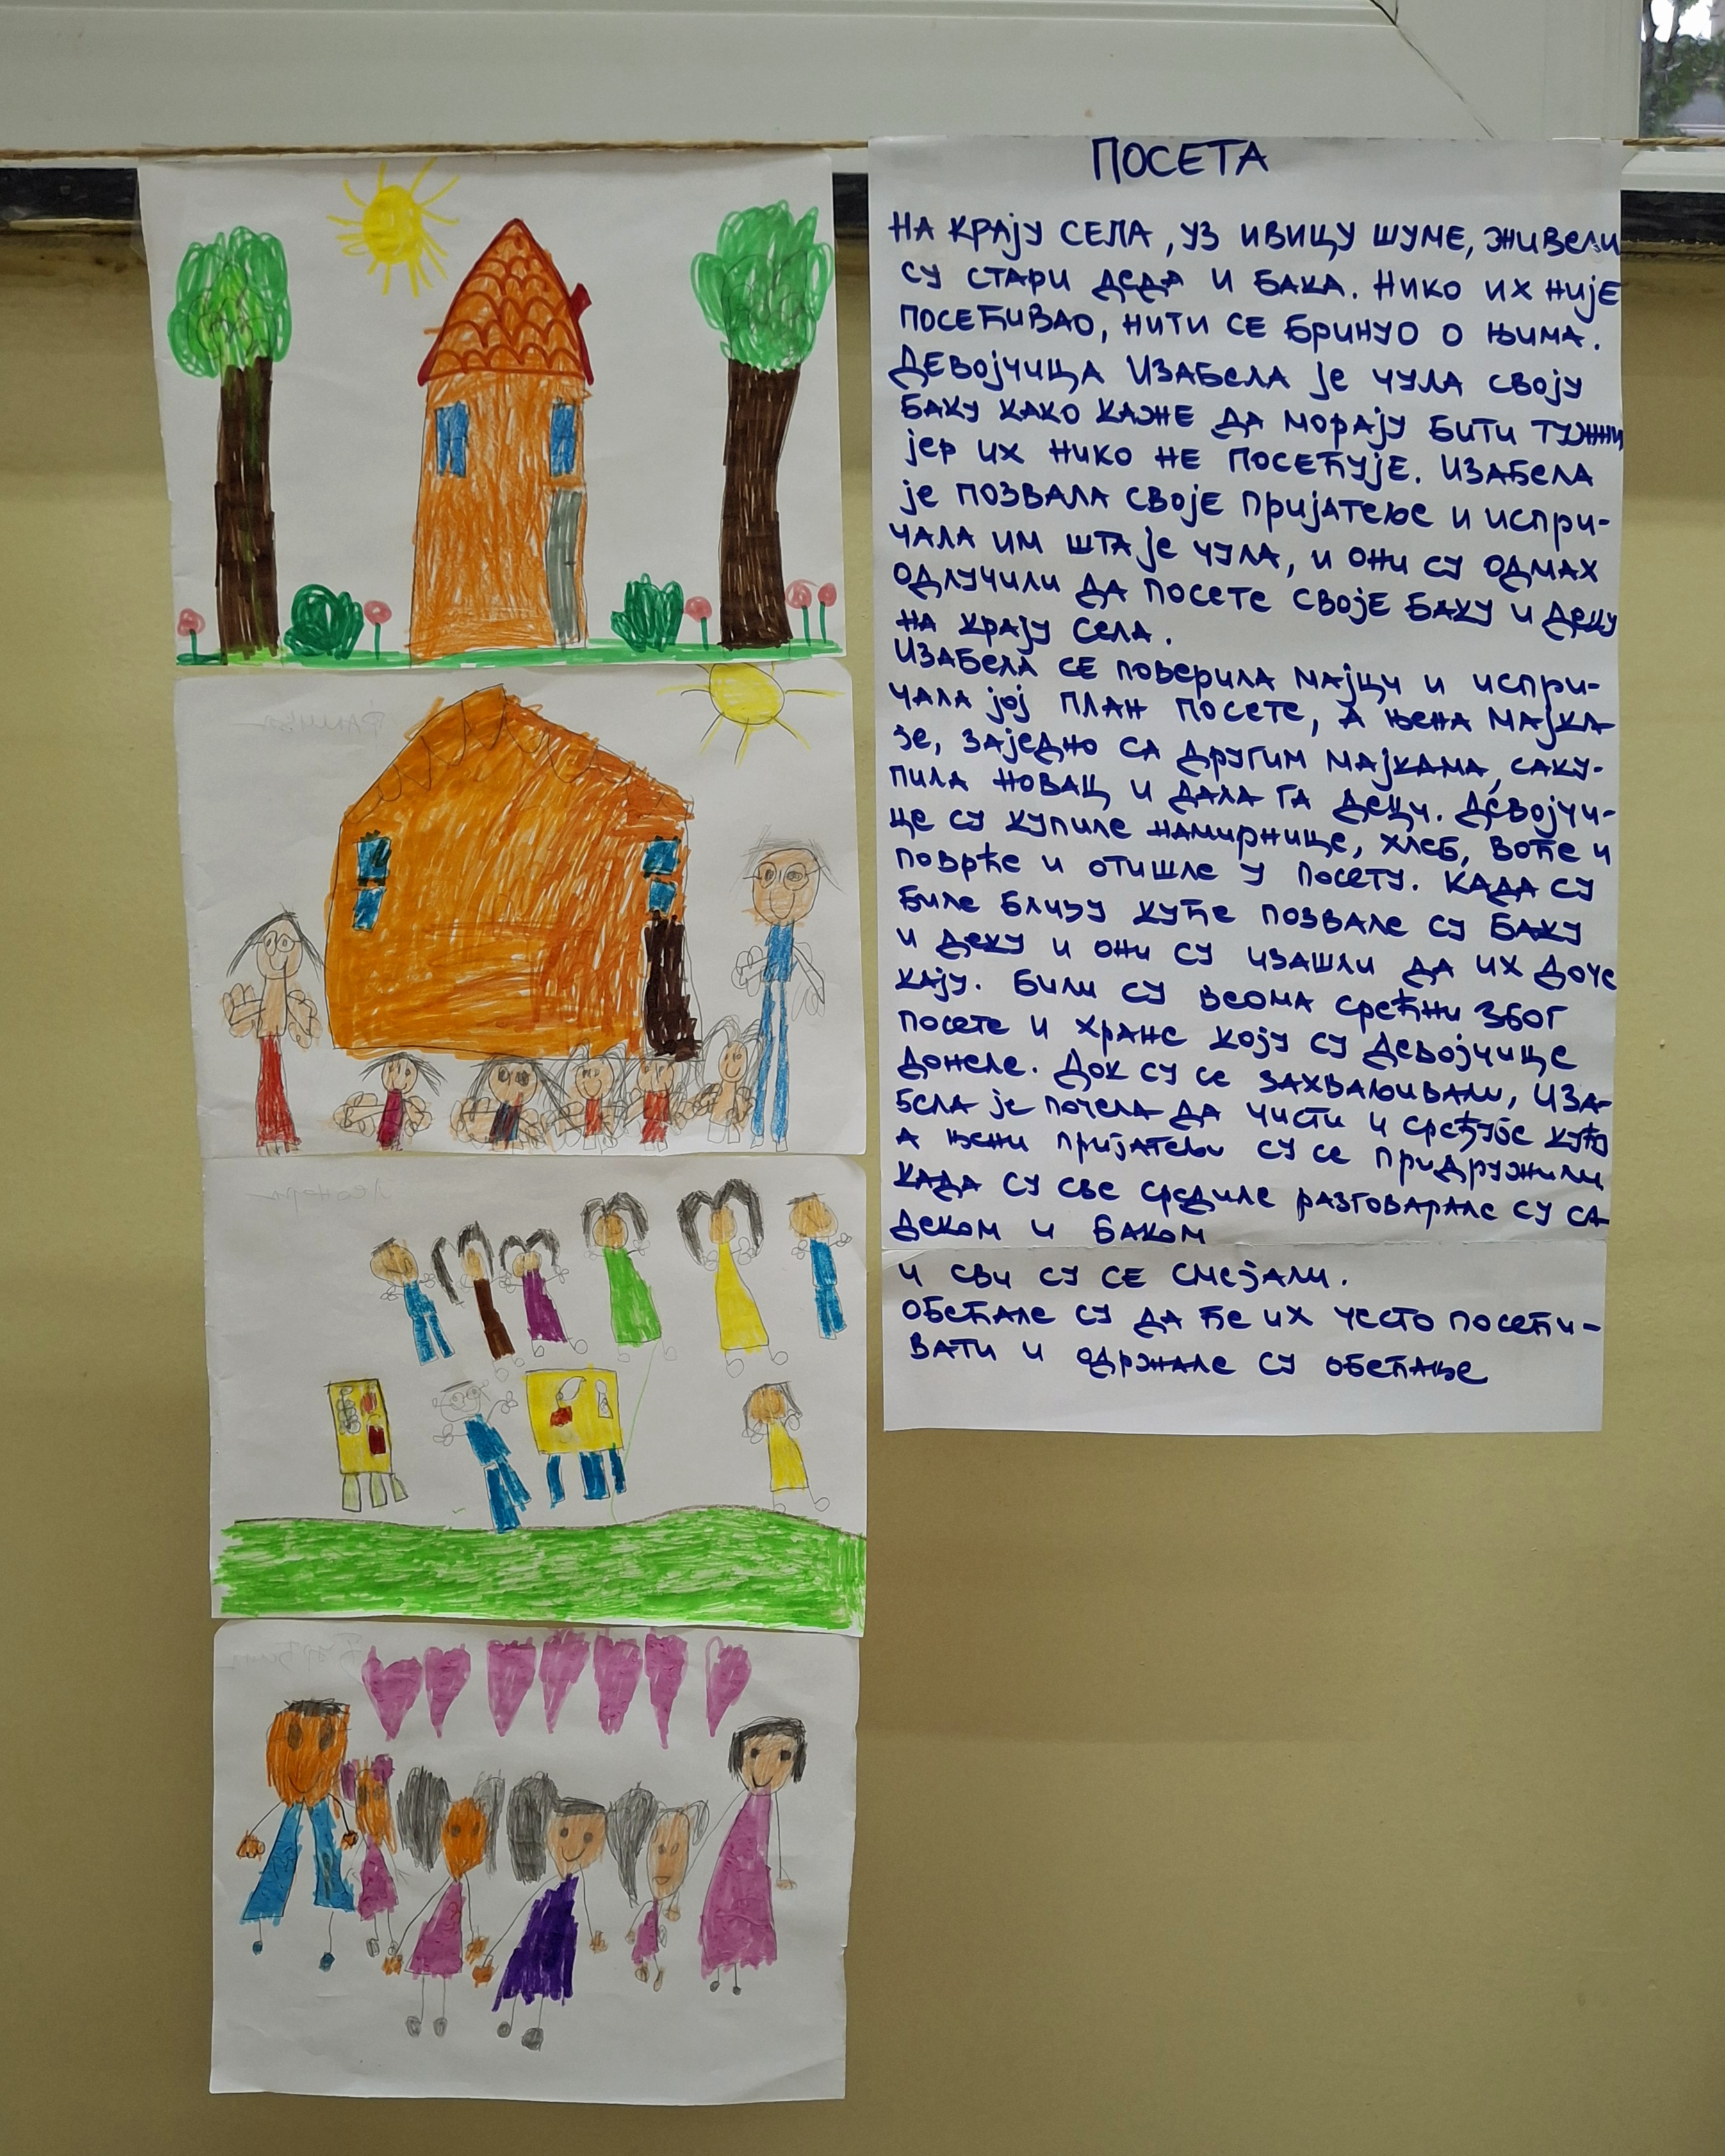 ПОСЕТА
НА КРАЈУ СЕЛА, УЗ ИВИЦУ ШУМЕ, ЖИВЕЛИ
СУ СТАРИ ДЕДА И БАКА. НИКО ИХ НИЈЕ
ПОСЕЋИВАО, НИТИ СЕ БРИНУО О ЊИМА.
ДЕВОЈЧИЦА ИЗАБЕЛА ЈЕ ЧУЛА СВОЈУ
БАКУ КАКО КАЖЕ ДА МОРАЈУ БИТИ ТУЖНИ
ЈЕР ИХ НИКО НЕ ПОСЕЋУЈЕ. ИЗАБЕЛА
ЈЕ ПОЗВАЛА СВОЈЕ ПРИЈАТЕЉЕ И ИСПРИ-
ЧАЛА ИМ ШТА ЈЕ ЧУЛА, И ОНИ СУ ОДМАХ
ОДЛУЧИЛИ ДА ПОСЕТЕ СВОЈЕ БАКУ И ДЕКУ
НА КРАЈУ СЕЛА.
ИЗАБЕЛА СЕ ПОВЕРИЛА МАЈЦИ И ИСПРИ-
ЧАЛА ЈОЈ ПЛАН ПОСЕТЕ, А ЊЕНА МАЈКА
ЈЕ, ЗАЈЕДНО СА ДРУГИМ МАЈКАМА, САКУ-
ПИЛА НОВАЦ И ДАЛА ГА ДЕЦИ. ДЕВОЈЧИ-
ЦЕ СУ КУПИЛЕ НАМИРНИЦЕ, ХЛЕБ, ВОЋЕ И
ПОВРЋЕ И ОТИШЛЕ У ПОСЕТУ. КАДА СУ
БИЛЕ БЛИЗУ КУЋЕ ПОЗВАЛЕ СУ БАКУ
И ДЕКУ И ОНИ СУ ИЗАШЛИ ДА ИХ ДОЧЕ
КАЈУ. БИЛИ СУ ВЕОМА СРЕЋНИ ЗБОГ
ПОСЕТЕ И ХРАНЕ КОЈУ СУ ДЕВОЈЧИЦЕ
ДОНЕЛЕ. ДОК СУ СЕ ЗАХВАЉИВАЛИ, ИЗА-
БЕЛА ЈЕ ПОЧЕЛА ДА ЧИСТИ И СРЕЂУЈЕ КУЋУ
А ЊЕНИ ПРИЈАТЕЉИ СУ СЕ ПРИДРУЖИЛИ
КАДА СУ СВЕ СРЕДИЛЕ РАЗГОВАРАЛЕ СУ СА
ДЕКОМ И БАКОМ
И СВИ СУ СЕ СМЕЈАЛИ.
ОБЕЋАЛЕ СУ ДА ЋЕ ИХ ЧЕСТО ПОСЕЋИ-
ВАТИ И ОДРЖАЛЕ СУ ОБЕЋАЊЕ